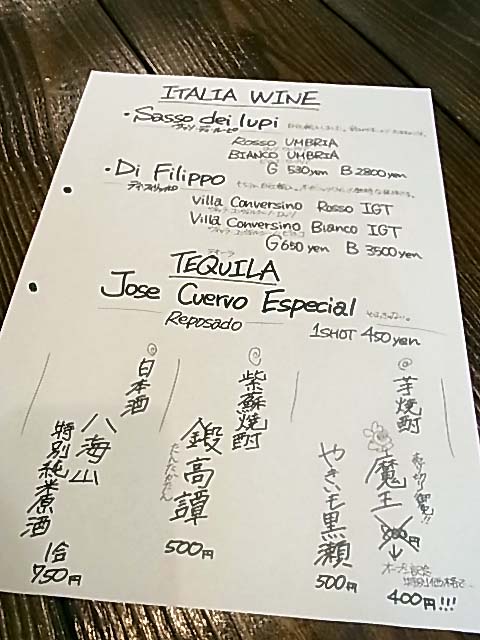 ITALIA WINE
・Sasso dei lupi
ROSSO UMBRIA
BIANCO UMBRIA
G 530 yen B 2800 yen
・Di Filippo
Villa Conversino Rosso IGT
Villa Conversino Bianco IGT
G 650 yen B 3500 yen
テキーラ
TEQUILA
Jose Cuervo Especial
Reposado
1SHOT 450yen
◎芋焼酎
魔王
売り切り御免!!
800円
↓
オープン記念
特別価格で
400円!!!
やきいも黒瀬
500円
◎紫蘇焼酎
鍛高譚
たんたかたん
500円
◎日本酒
八海山
特別純米原酒
1合
750円